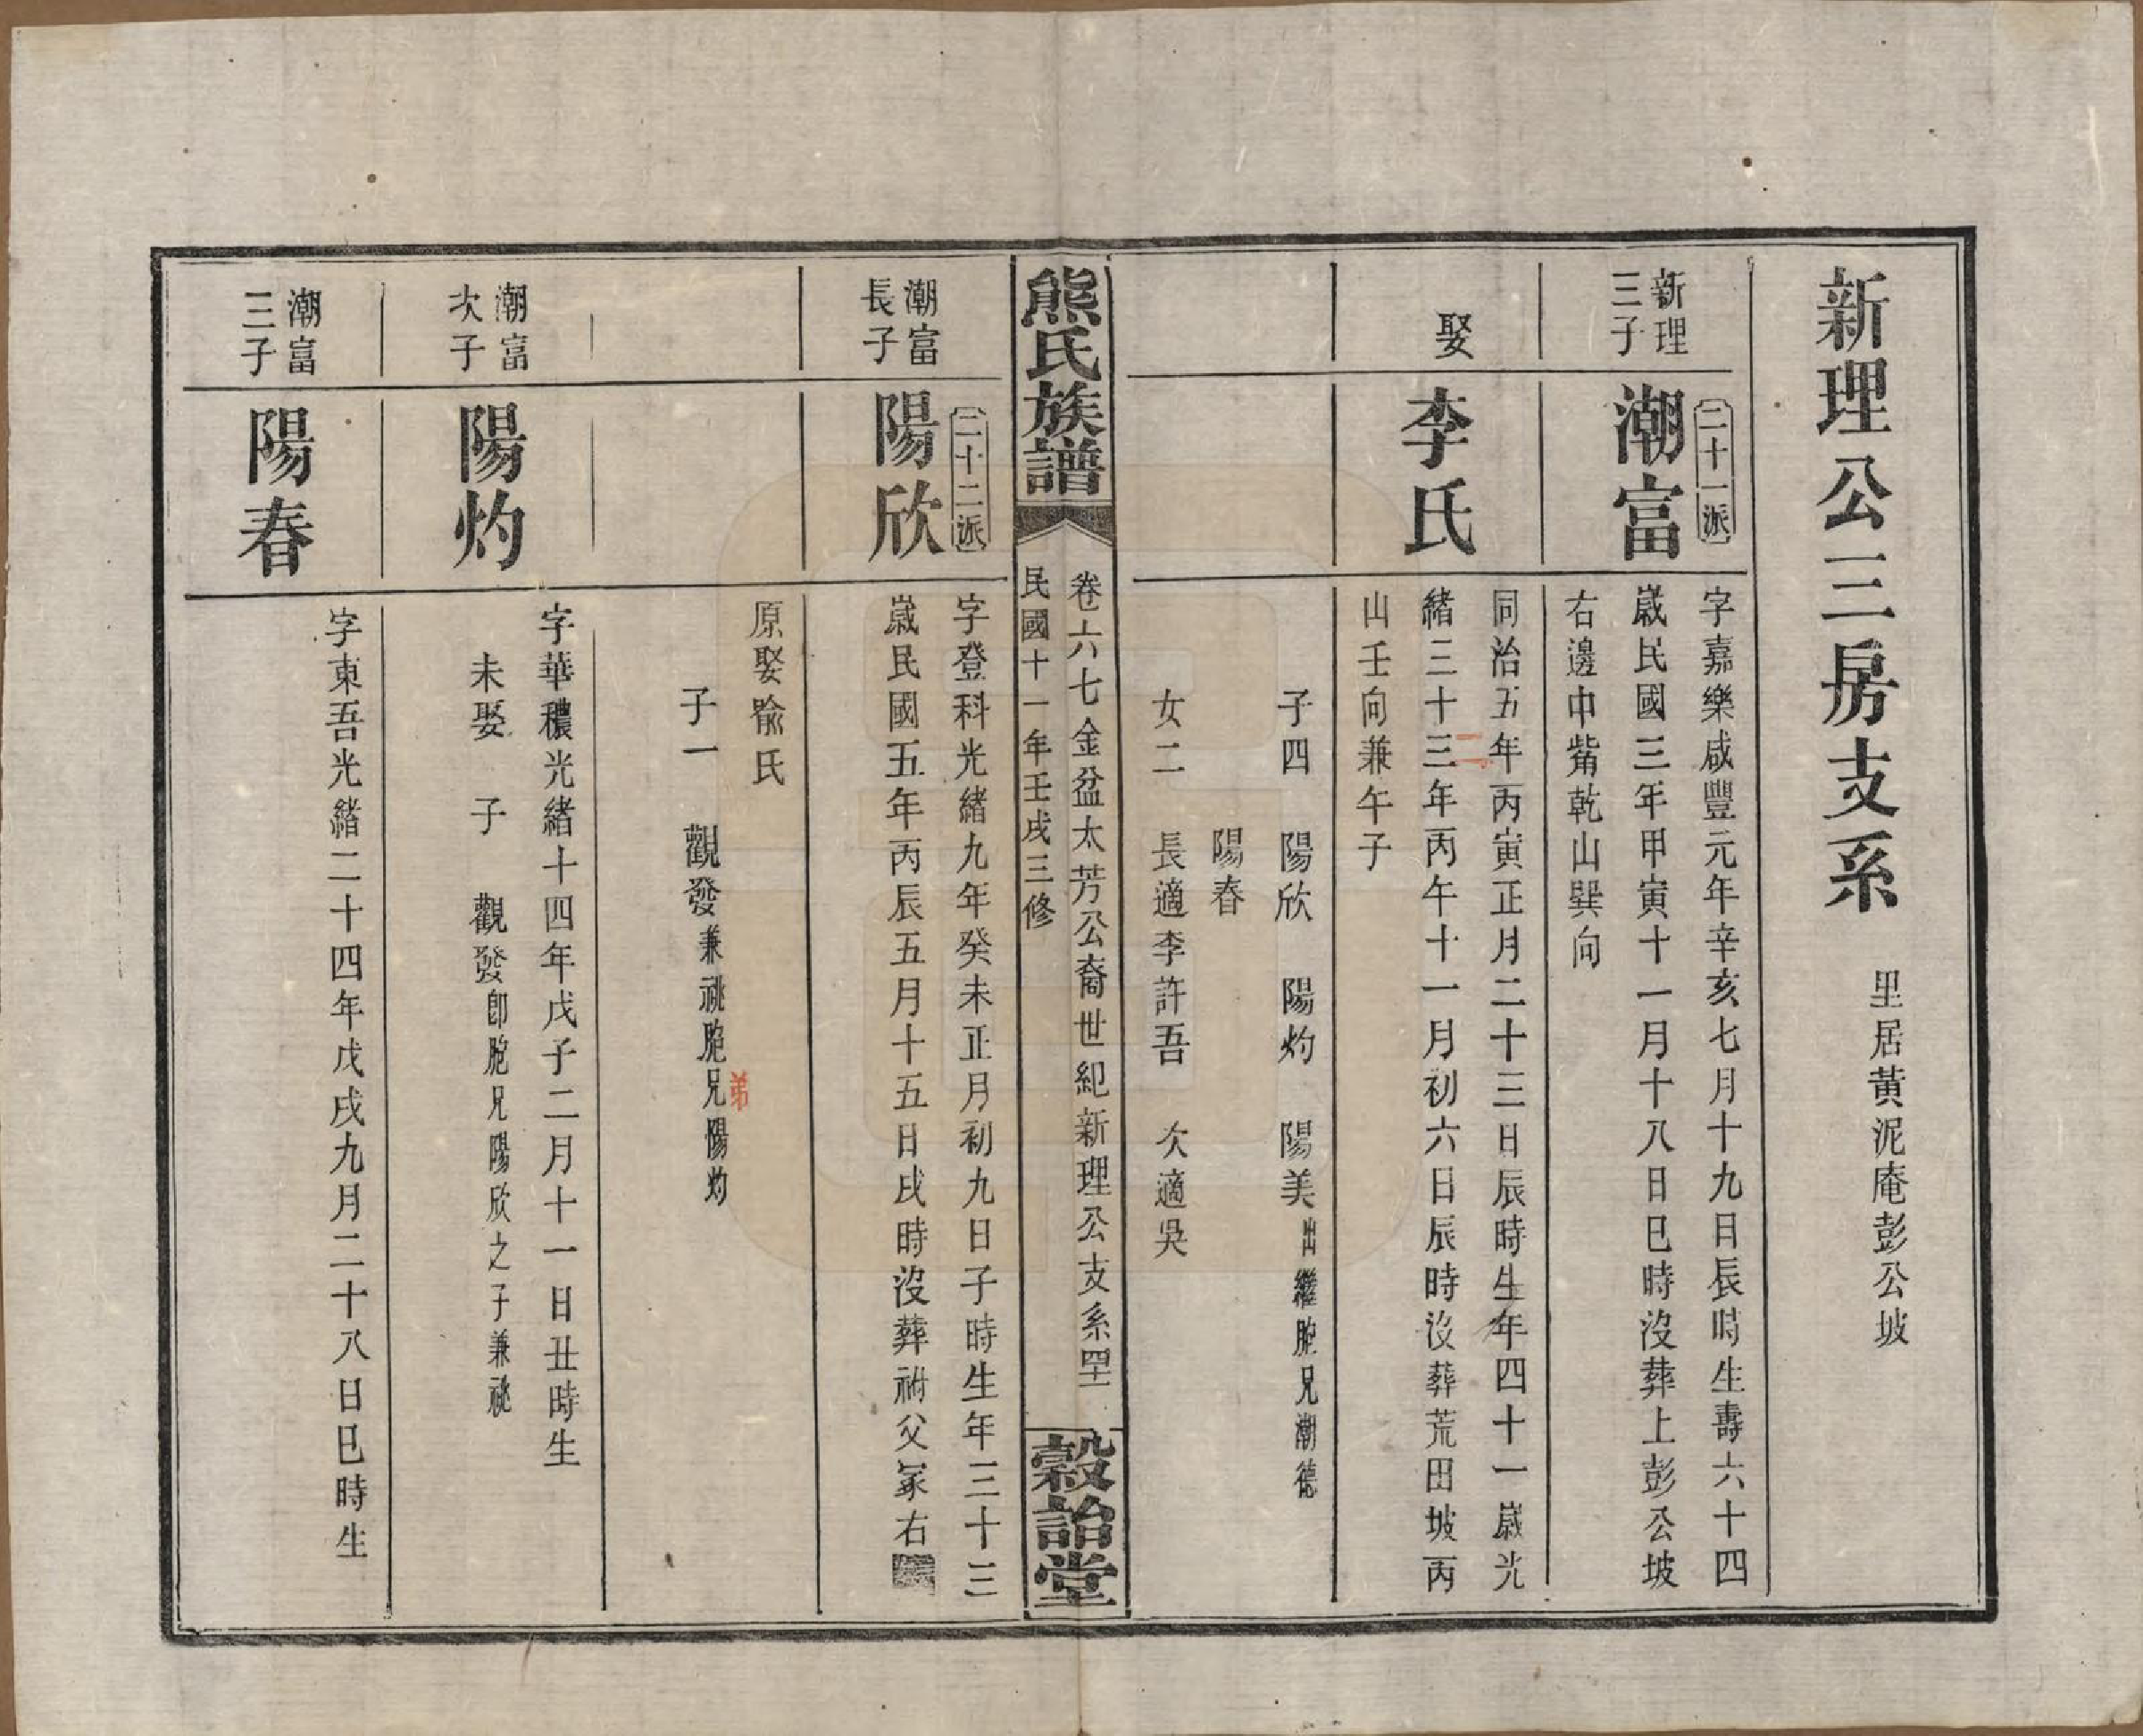 新理公三房支系　里居黃泥庵彭公坡
二十一派
新理
三子
潮富
字嘉樂咸豐元年辛亥七月十九日辰時生壽六十四
歲民國三年甲寅十一月十八日巳時沒葬上彭公坡
右邊中觜乾山巽向
娶
李氏
同治五年丙寅正月二十三日辰時生年四十一歲光
緒三十三年丙午十一月初六日辰時沒葬荒田坡丙
二
山壬向兼午子
子四　陽欣　陽灼　陽美出繼胞兄潮德
陽春
女二　長適李許吾　次適吳
熊氏族譜
卷六七金盆太芳公裔世紀新理公支系
民國十一年壬戌三修
穀詒堂
二十二派
潮富
長子
陽欣
字登科光緒九年癸未正月初九日子時生年三十三
歲民國五年丙辰五月十五日戌時沒葬祔父冢右
原娶喩氏
子一　觀發兼祧胞兄陽灼
弟
潮富
次子
陽灼
字華穠光緒十四年戊子二月十一日丑時生
未娶　子　觀發卽胞兄陽欣之子兼祧
潮富
三子
陽春
字東吾光緒二十四年戊戌九月二十八日巳時生